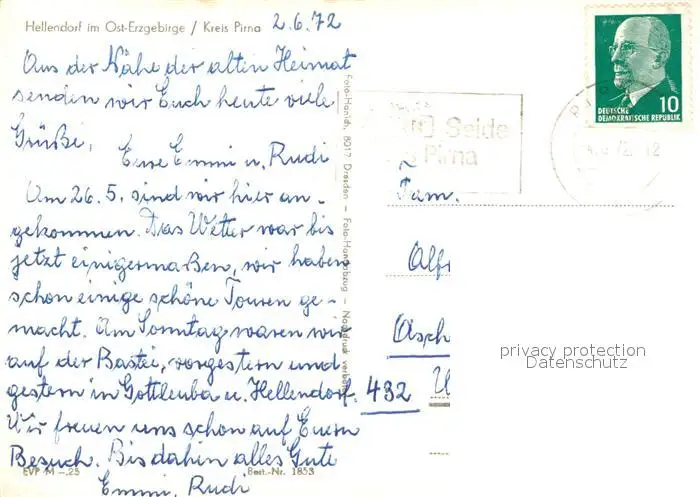 Hellendorf im Ost-Erzgebirge / Kreis Pirna
2.6.72
Aus der Nähe der alten Heimat
senden wir Euch heute viele
Grüße,
Eure Emmi u. Rudi
Am 26.5. sind wir hier an-
gekommen. Das Wetter war bis
jetzt einigermaßen, wir haben
schon einige schöne Touren ge-
macht. Am Sonntag waren wir
auf der Bastei, vorgestern und
gestern in Gottleuba u. Hellendorf.
Wir freuen uns schon auf Euern
Besuch. Bis dahin alles Gute
Emmi, Rudi
EVP M -.25
Best.-Nr. 1853
Foto-Hanich, 8017 Dresden — Foto-Handabzug — Nachdruck verboten
Seide
Pirna
10
DEUTSCHE
DEMOKRATISCHE REPUBLIK
Fam.
Alfr
Asch
432
privacy protection
Datenschutz